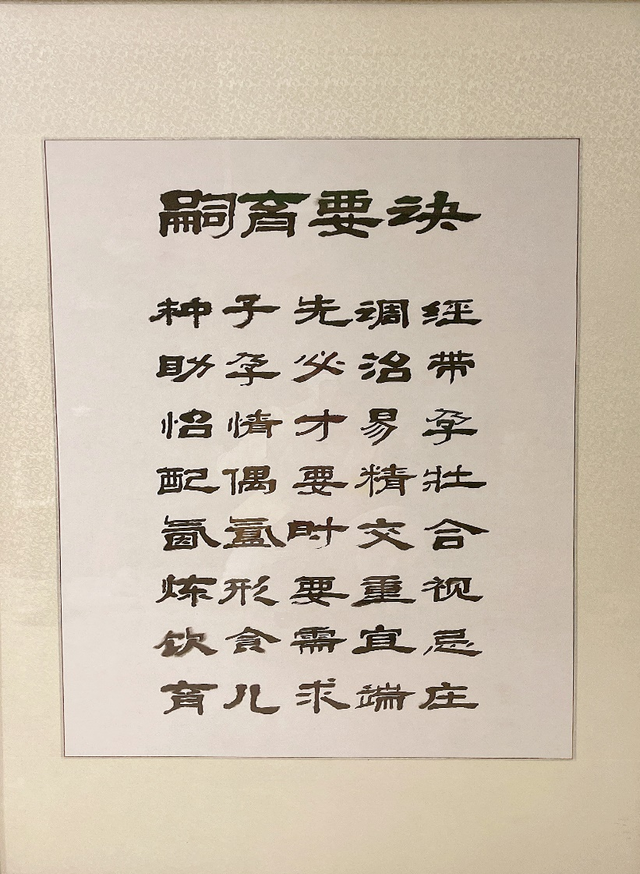 嗣育要诀
种子先调经
助孕必治带
怡情才易孕
配偶要精壮
氤氲时交合
炼形要重视
饮食需宜忌
育儿求端庄